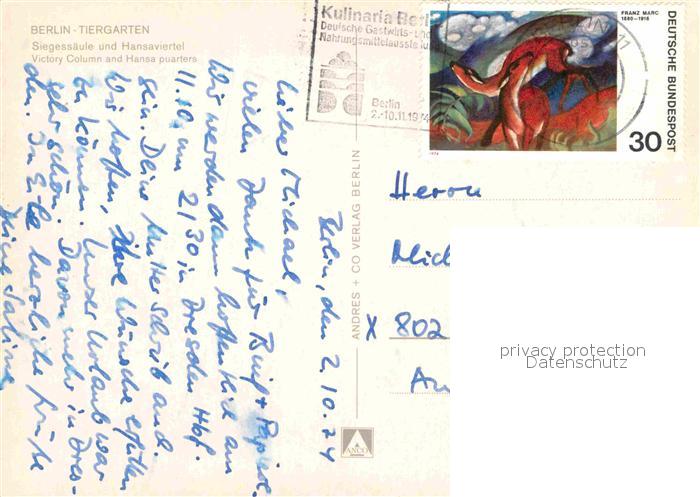 BERLIN - TIERGARTEN
Siegessäule und Hansaviertel
Victory Column and Hansa puarters
Kulinaria Berlin
Deutsche Gastwirts- und
Nahrungsmittelausstellung
Berlin
2.-10.11.1974
FRANZ MARC
1880-1916
DEUTSCHE BUNDESPOST
30
1974
Berlin, den 2.10.74
Lieber Michael,
vielen Dank für Brief +
Wir werden dann hoffentlich am
11.10. um 2130 in Dresden Hbf.
sein. Deine Mutter schrieb auch.
Wir hoffen, ihre Wünsche erfüllen
zu können. Unser Urlaub war
sehr schön. Davon mehr in Dres-
den. In Eile herzliche Grüße
Deine Sabine
ANDRES + CO VERLAG BERLIN
ANCO
Herrn
Mich
X 802
Au
privacy protection
Datenschutz